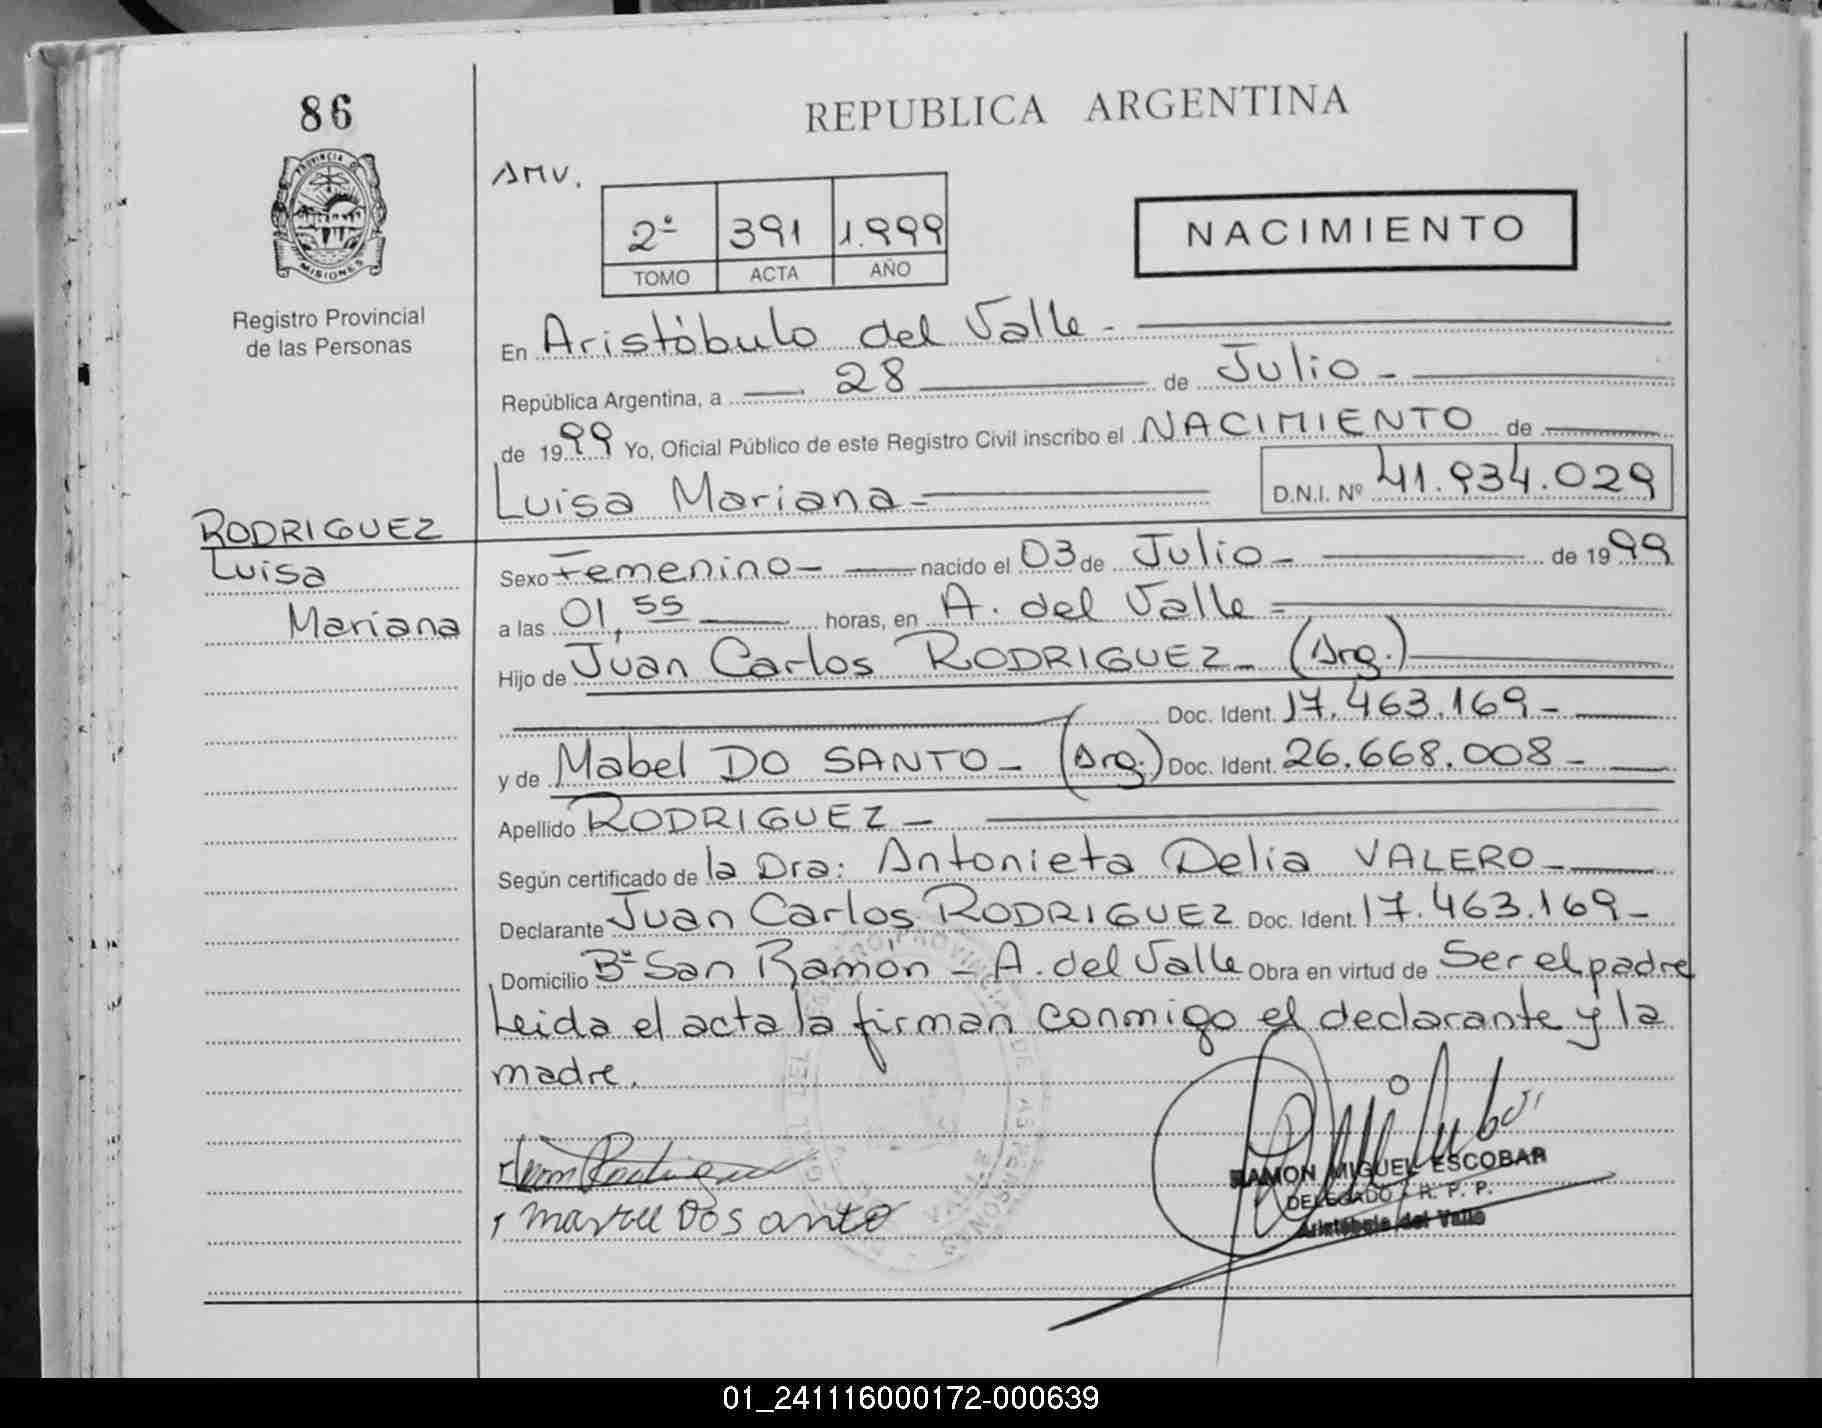 86
REPUBLICA ARGENTINA
PROVINCIA DE
MISIONES
Registro Provincial
de las Personas
AMV.
2º 391 1.999
TOMO ACTA AÑO
NACIMIENTO
En Aristóbulo del Valle -
República Argentina, a 28 de Julio -
de 1999 Yo, Oficial Público de este Registro Civil inscribo el NACIMIENTO de
Luisa Mariana - D.N.I. Nº 41.934.029
RODRIGUEZ
Luisa
Mariana
Sexo Femenino - nacido el 03 de Julio - de 1999
a las 01,55 horas, en A. del Valle =
Hijo de Juan Carlos RODRIGUEZ - (Arg.)
Doc. Ident. 17.463.169 -
y de Mabel DO SANTO - (Arg.) Doc. Ident. 26.668.008 -
Apellido RODRIGUEZ -
Según certificado de la Dra: Antonieta Delia VALERO -
Declarante Juan Carlos RODRIGUEZ Doc. Ident. 17.463.169 -
Domicilio Bº San Ramón - A. del Valle Obra en virtud de Ser el padre
Leida el acta la firman conmigo el declarante y la
madre.
RAMON MIGUEL ESCOBAR
DELEGADO R. P. P.
Aristóbulo del Valle
01_241116000172-000639